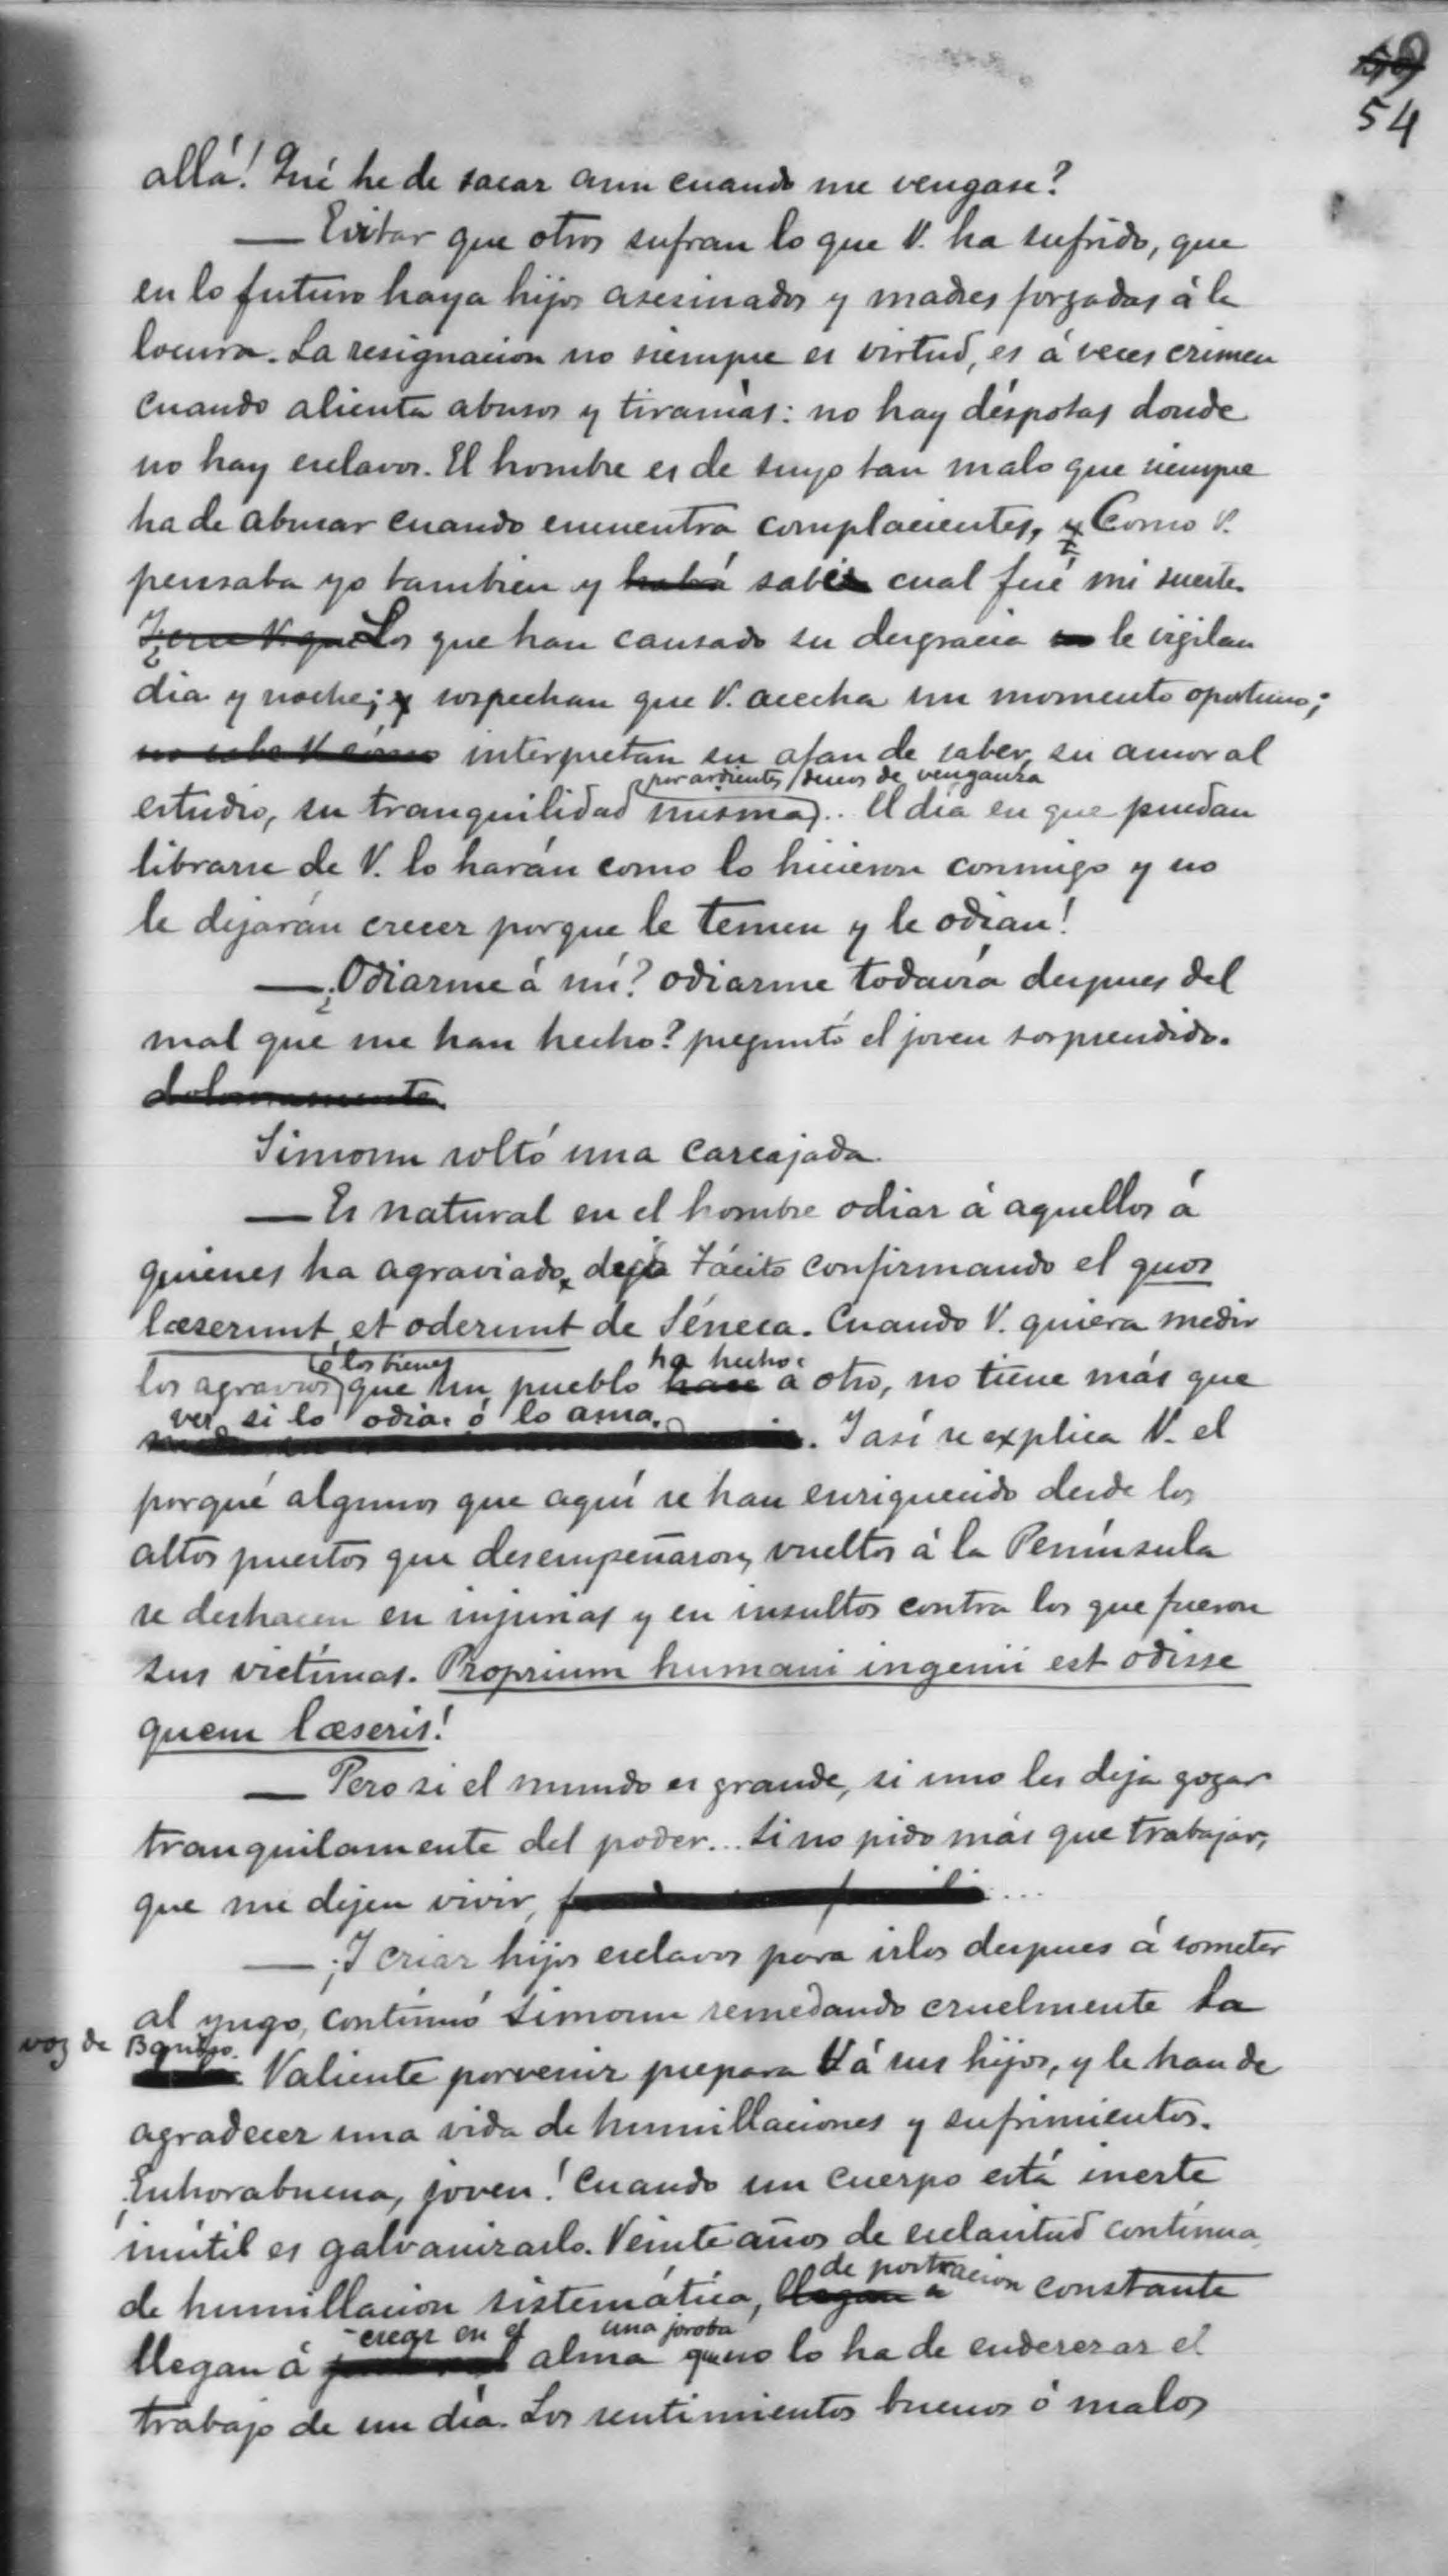 59
54
allá! Qué he de sacar aun cuando me vengase?
— Evitar que otros sufran lo que V. ha sufrido, que
en lo futuro haya hijos asesinados y madres forzadas á la
locura. La resignacion no siempre es virtud, es á veces crimen
cuando alienta abusos y tiranías: no hay déspotas donde
no hay esclavos. El hombre es de suyo tan malo que siempre
ha de abusar cuando encuentra complacientes, y Como V.
pensaba yo tambien y habrá sabe cual fué mi suerte.
Los que han causado su desgracia le vigilan
dia y noche; y sospechan que V. acecha un momento oportuno;
no sabe V. cómo interpretan su afan de saber, su amor al
por ardientes deseos de venganza
estudio, su tranquilidad misma... El dia en que puedan
librarse de V. lo harán como lo hicieron conmigo y no
le dejarán crecer porque le temen y le odian!
— ¿Odiarme á mí? odiarme todavía despues del
mal que me han hecho? preguntó el joven sorprendido.
dolorosamente.
Simoun soltó una carcajada.
— Es natural en el hombre odiar á aquellos á
quienes ha agraviado, deja Tácito confirmando el quos
læserunt et oderunt de Séneca. Cuando V. quiera medir
ó los bienes ha hecho
los agravios que un pueblo hace á otro, no tiene más que
ver si lo odia ó lo ama.
. Y así se explica V. el
porqué algunos que aquí se han enriquecido desde los
altos puestos que desempeñaron, vueltos á la Península
se deshacen en injurias y en insultos contra los que fueron
sus víctimas. Proprium humani ingenii est odisse
quem læseris!
— Pero si el mundo es grande, si uno les deja gozar
tranquilamente del poder... Si no pido más que trabajar,
que me dejen vivir, ...
— ¡Y criar hijos esclavos para irlos despues á someter
al yugo, continuó Simoun remedando cruelmente la
voz de Basilio.
Valiente porvenir prepara V á sus hijos, y le han de
agradecer una vida de humillaciones y sufrimientos.
¡Enhorabuena, joven! Cuando un cuerpo está inerte
inútil es galvanizarlo. Veinte años de esclavitud continua,
de postracion
de humillacion sistemática, llegan a constante
crear en el una joroba
llegan á alma que no lo ha de enderezar el
trabajo de un día. Los sentimientos buenos ó malos